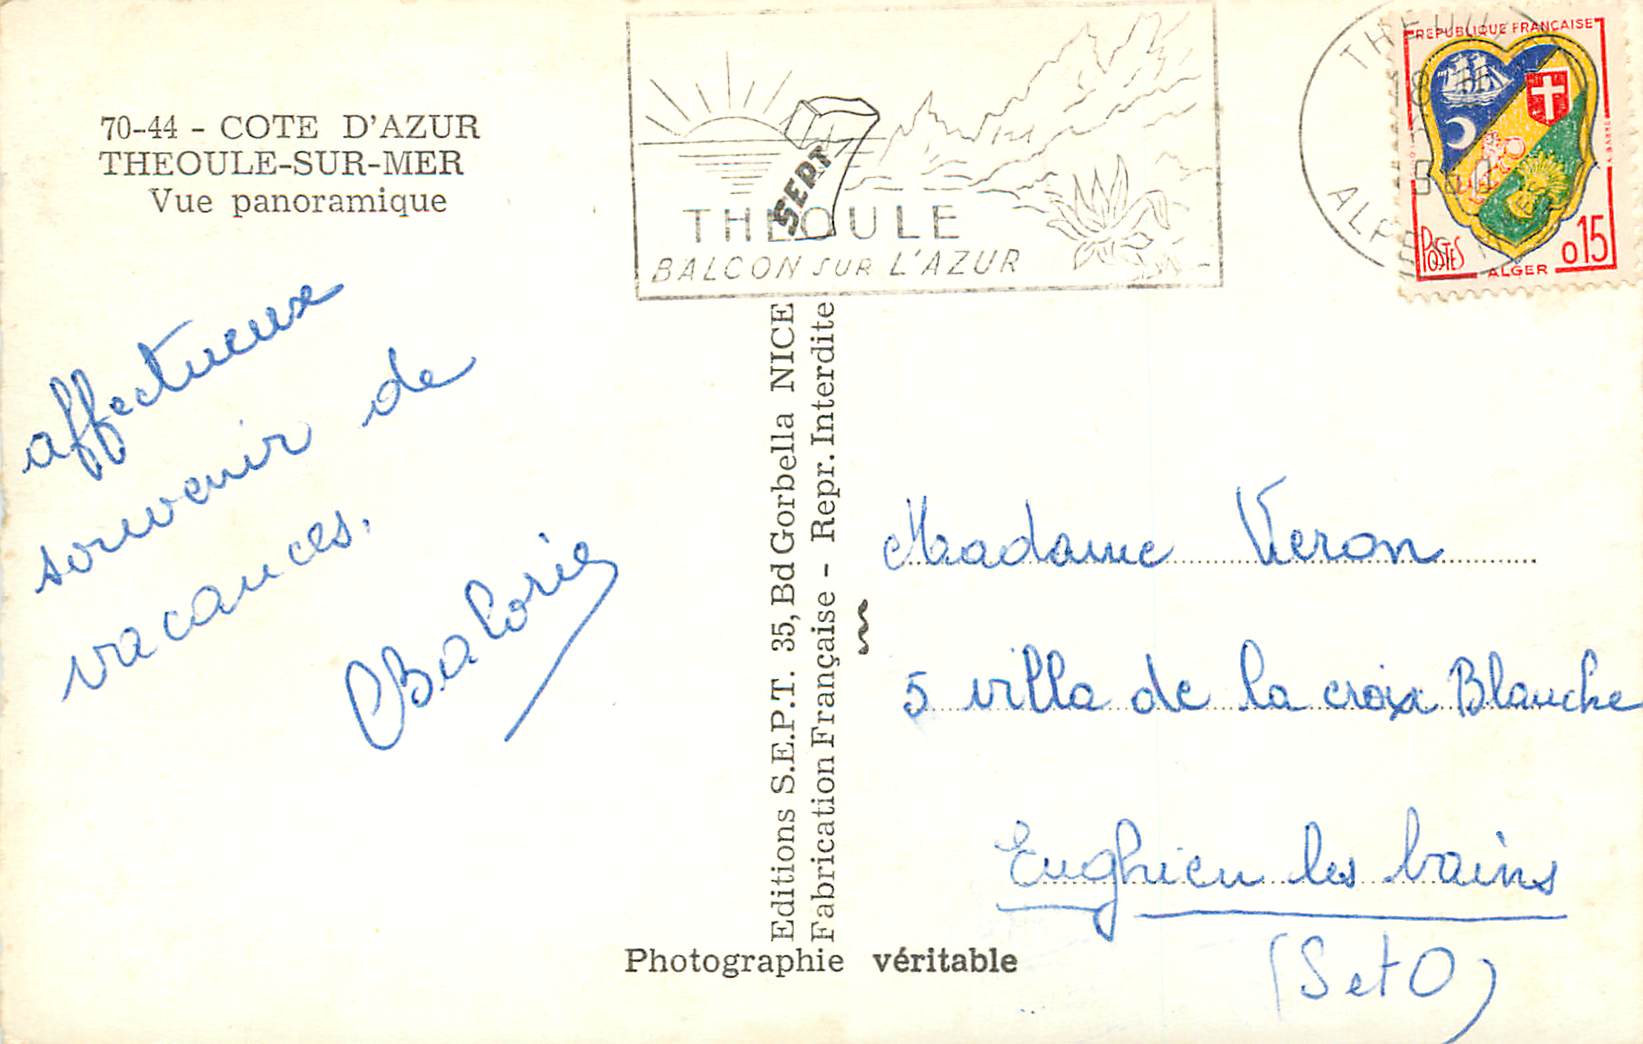 70-44 - COTE D'AZUR
THEOULE-SUR-MER
Vue panoramique
THEOULE
BALCON SUR L'AZUR
SEPT
REPUBLIQUE FRANÇAISE
POSTES
ALGER
0,15
affectueux
souvenir de
vacances.
Editions S.E.P.T. 35, Bd Gorbella NICE
Fabrication Française - Repr. Interdite
Madame Veron
5 villa de la croix Blanche
Enghien les bains
(S et O)
Photographie véritable